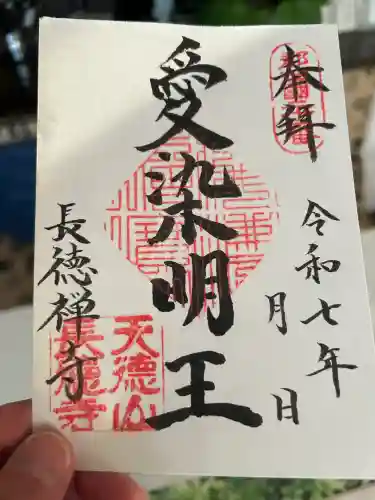 奉拝
令和七年
月 日
愛染明王
長徳禅寺
天德山
長德寺